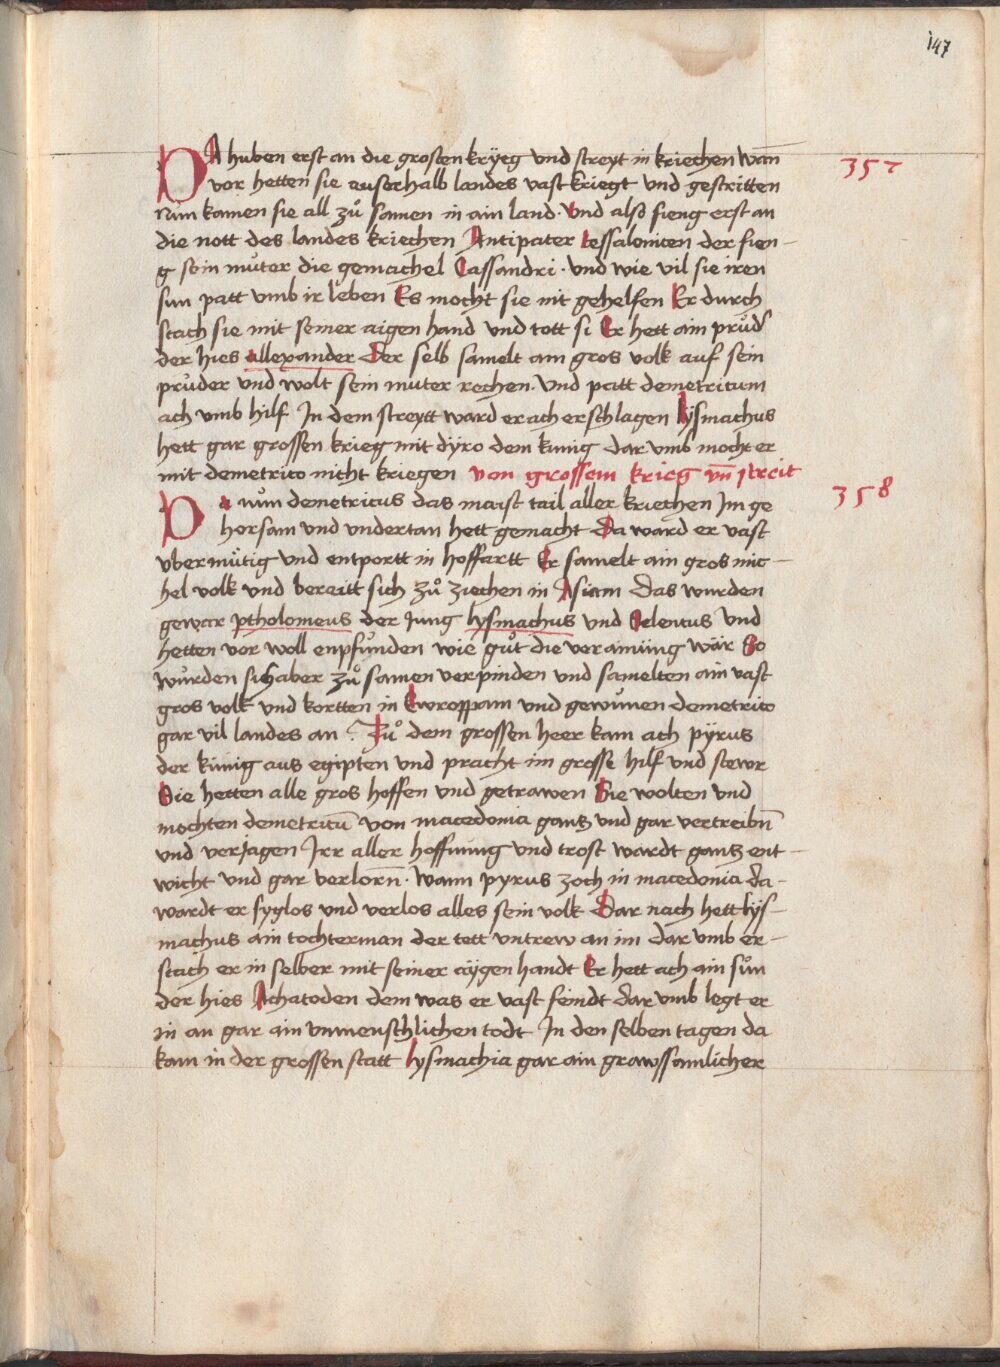 147
DA huben erst an die grosten krÿeg vnd streyt in kriechen wan̄
352
vor hetten sie auserhalb landes vast kriegt vnd gestritten
nün kamen sie all zuͦ samen in ain land · vnd also fieng erst an
die nott des landes kriechen Antipater tessaleniten der fien -
g sein muͦter die gemachel Cassandri · vnd wie vil sie iren
sun patt vmb ir leben Es mocht sie nit gehelfen Er durch
stach sie mit seiner aigen hand vnd tott si Er hett ain pruͦd˜
der hies allexander Der selb samelt ain gros volk auf sein
pruͦder vnd wolt sein muter rechen · vnd patt demetritum
ach vmb hilf In dem streytt ward er ach erschlagen lysmachus
hett gar grossen krieg mit dÿro dem kunig dar vmb mocht er
mit demetrito nicht kriegen von grossem krieg vn̄ streit
358
Da nuͦm demetricus das maist tail aller kriechen Im ge
horsam vnd vndertan hett gemacht Da ward er vast
vbermuͦtig vnd entportt in hoffartt Er samelt ain gros mic -
hel volk vnd bereitt sich zuͦ ziechen in Asiam Das wurden
gewar ptholomeus der Jung lysmachus vnd Selentus vnd
hetten vor woll enpfunden wie guͦt die verainüng wär So
wuͦrden sich aber zuͦ samen verpinden vnd samelten ain vast
gros volk vnd kortten in Ewroppam vnd gewuͦnen demetrito
gar vil landes an · Zuͦ dem grossen heer kam ach pÿrus
der künig aus egipten vnd pracht im grosse hilf vnd stewr
Die hetten alle gros hoffen vnd getrawen Sie wolten vnd
mochten demetritū von macedonia gantz vnd gar vertreibn̄
vnd verjagen Irr aller hoffnung vnd trost wardt gantz ent -
wicht vnd gar verlorn̄ · wann pyrus zoch in macedonia da -
wardt er syglos vnd verlos alles sein volk Dar nach hett lÿs -
machus ain tochterman der tett vntrew an im dar vmb er -
stach er in selber mit seiner aÿgen handt Er hett ach ain suͦn
der hies Achatoden dem was er vast feindt dar vmb legt er
in an gar ain vnmenschlichen todt In den selben tagen da
kam in der grossen statt lysmachia gar ain grawssamlicher